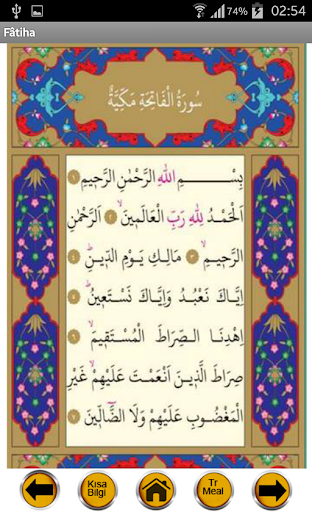 74% 02:54
Fâtiha
سُورَةُ الْفَاتِحَةِ مَكِّيَّةٌ
بِسْمِ اللهِ الرَّحْمٰنِ الرَّحِيمِ ١
اَلْحَمْدُ لِلّٰهِ رَبِّ الْعَالَمِينَۙ ٢ اَلرَّحْمٰنِ
الرَّحِيمِۙ ٣ مَالِكِ يَوْمِ الدِّينِۜ ٤
اِيَّاكَ نَعْبُدُ وَاِيَّاكَ نَسْتَعِينُۜ ٥
اِهْدِنَا الصِّرَاطَ الْمُسْتَقِيمَۙ ٦
صِرَاطَ الَّذِينَ اَنْعَمْتَ عَلَيْهِمْۙ غَيْرِ
الْمَغْضُوبِ عَلَيْهِمْ وَلَا الضَّٓالِّينَ ٧
Kısa
Bilgi
Tr
Meal